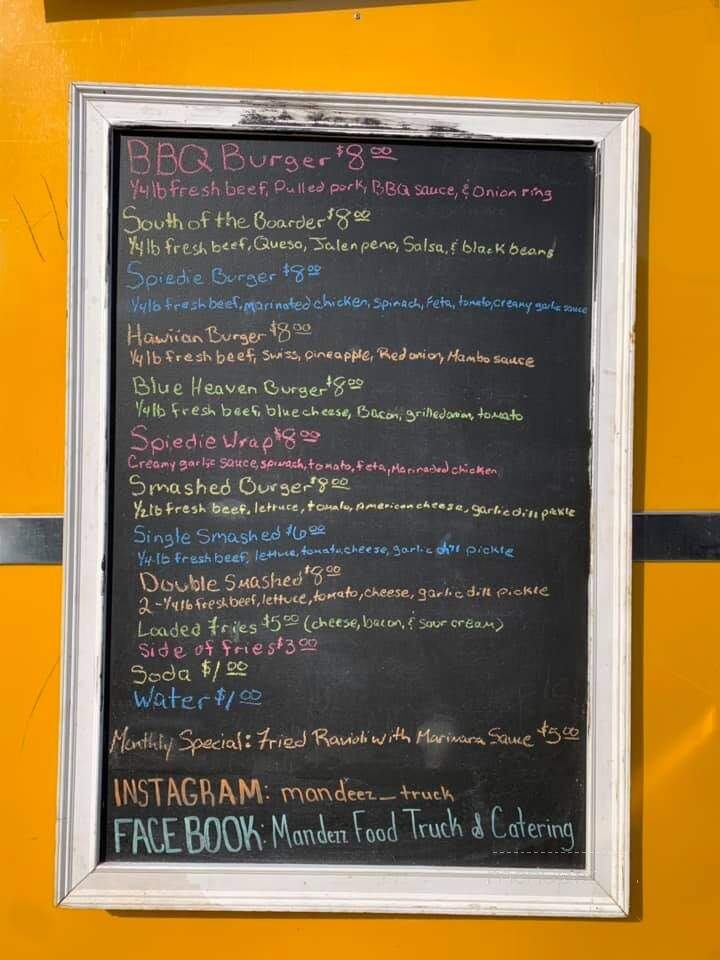 BBQ Burger $8.00
1/4 lb fresh beef, Pulled pork, BBQ sauce, & Onion ring
South of the Boarder $8.00
1/4 lb fresh beef, Queso, Jalenpeno, Salsa, & black beans
Spiedie Burger $8.00
1/4 lb fresh beef, marinated chicken, spinach, Feta, tomato, creamy garlic sauce
Hawiian Burger $8.00
1/4 lb fresh beef, swiss, pineapple, Red onion, Mambo sauce
Blue Heaven Burger $8.00
1/4 lb fresh beef, blue cheese, Bacon, grilled onion, tomato
Spiedie Wrap $8.00
Creamy garlic sauce, spinach, tomato, feta, Marinaded chicken
Smashed Burger $8.00
1/2 lb fresh beef, lettuce, tomato, American cheese, garlic dill pickle
Single Smashed $6.00
1/4 lb fresh beef, lettuce, tomato cheese, garlic dill pickle
Double Smashed $8.00
2-1/4 lb fresh beef, lettuce, tomato, cheese, garlic dill pickle
Loaded fries $5.00 (cheese, bacon, & sour cream)
Side of fries $3.00
Soda $1.00
Water $1.00
Monthly Special: Fried Ravioli with Marinara Sauce $5.00
INSTAGRAM: mandeez_truck
FACEBOOK: Mandeez Food Truck & Catering